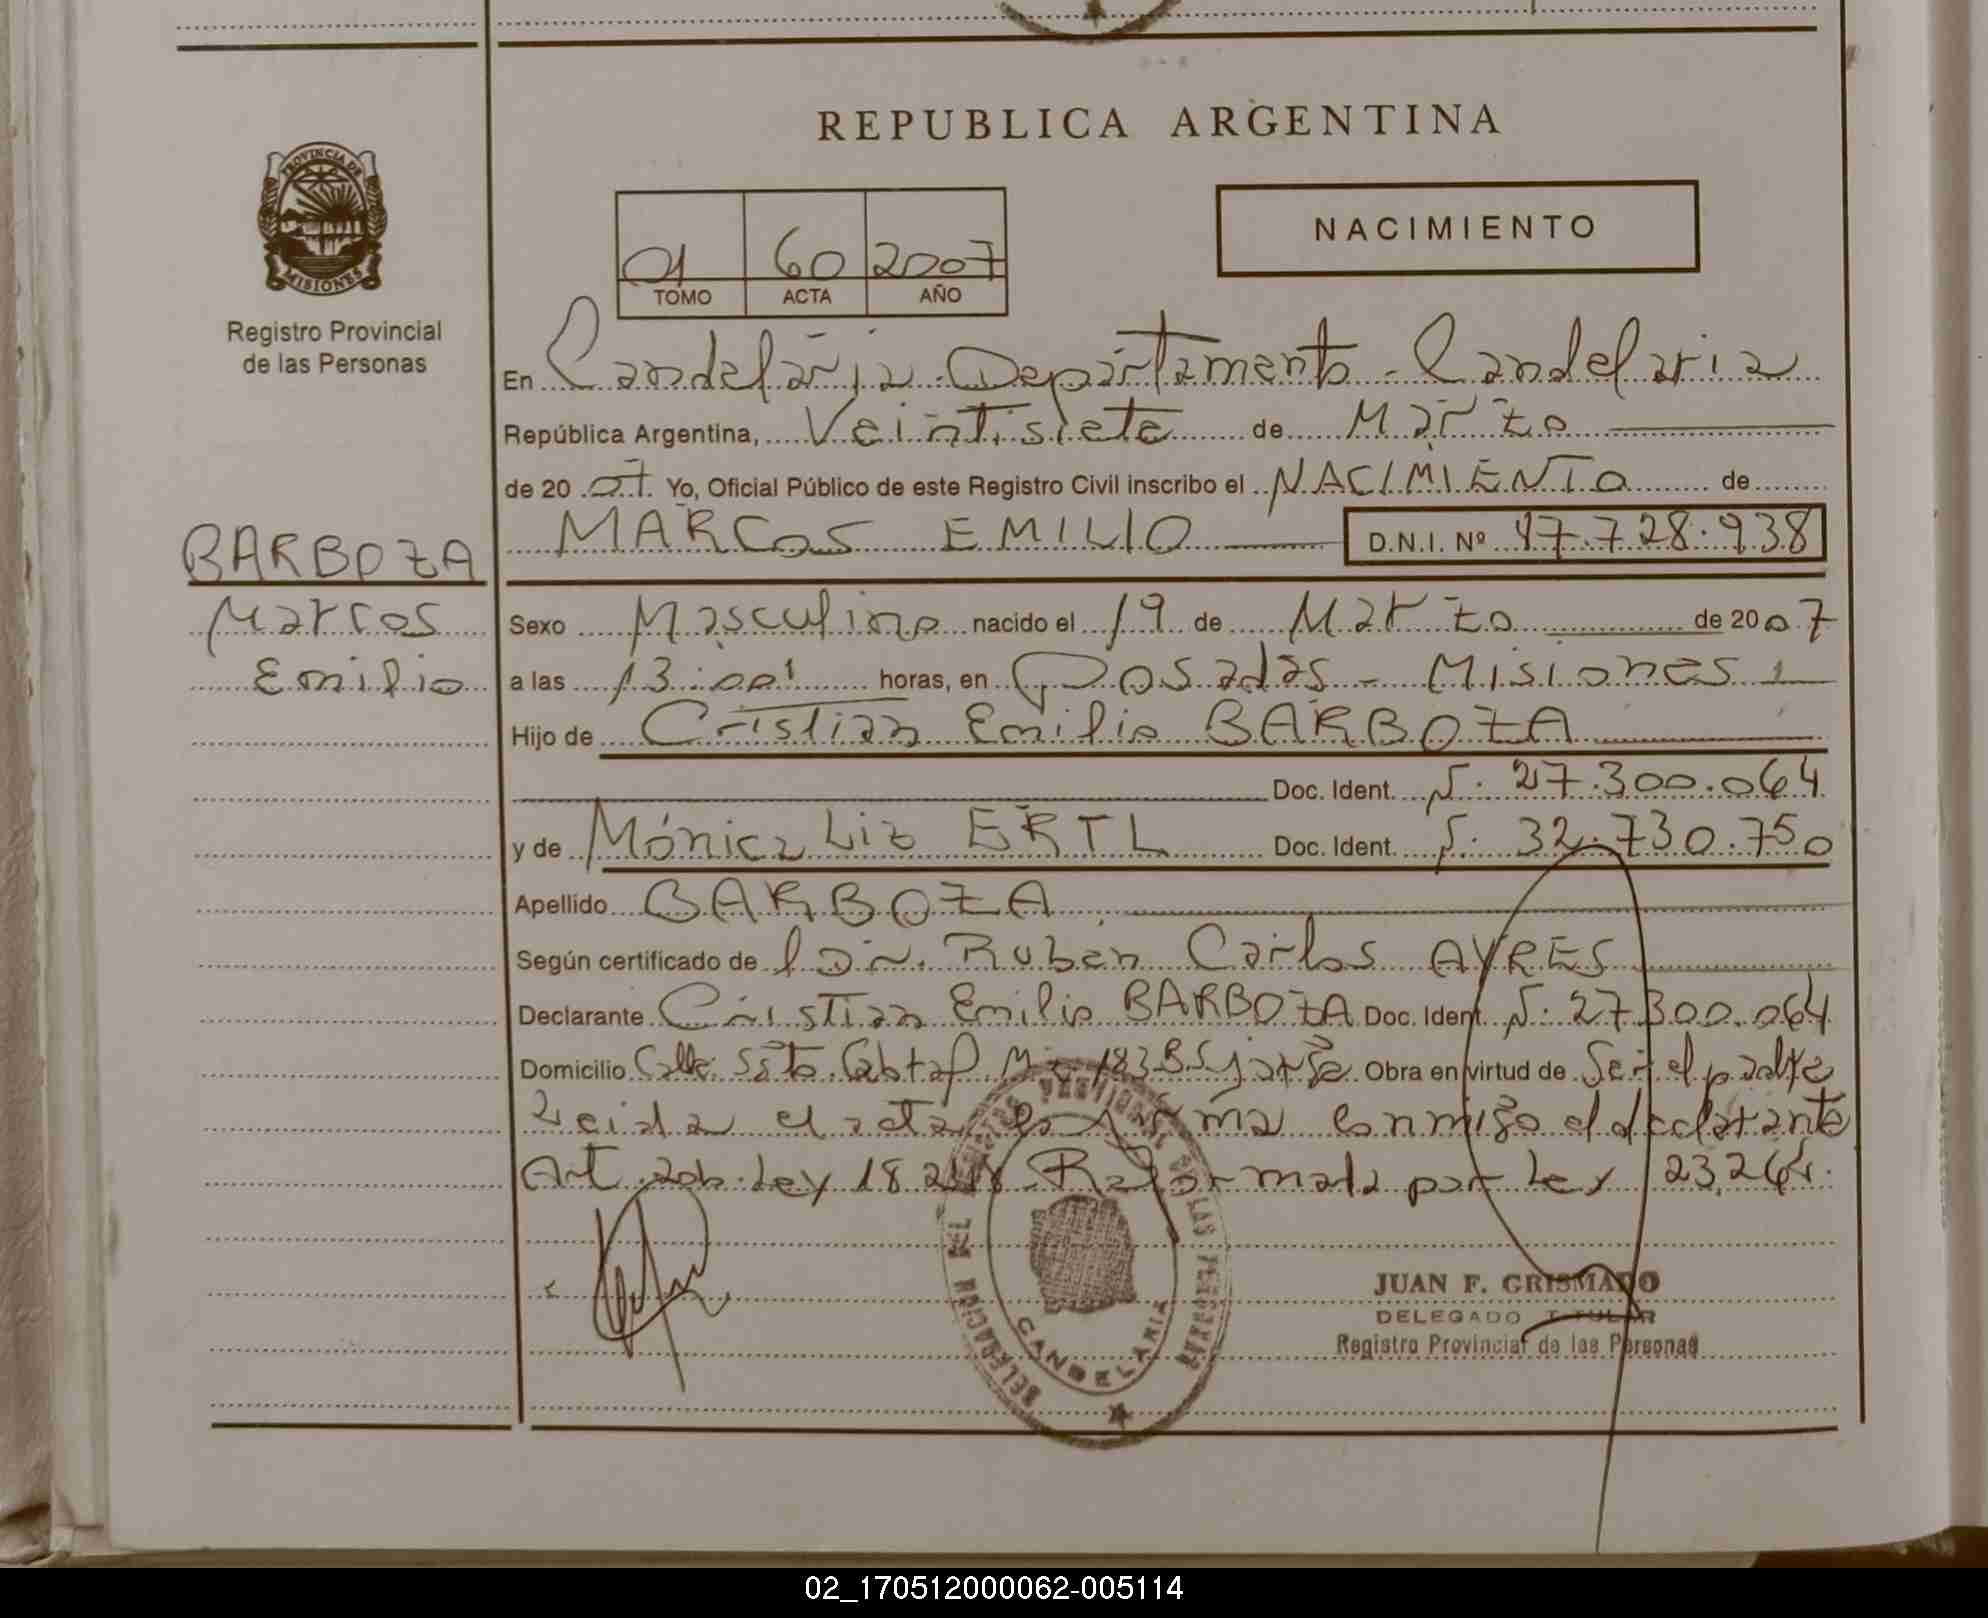 REPUBLICA ARGENTINA
PROVINCIA DE
MISIONES
Registro Provincial
de las Personas
01 60 2007
TOMO ACTA AÑO
NACIMIENTO
En Candelaria - Departamento - Candelaria
República Argentina, Veintisiete de Marzo
de 20 07. Yo, Oficial Público de este Registro Civil inscribo el NACIMIENTO de
MARCOS EMILIO D.N.I. Nº 47.728.938
BARBOZA
Marcos
Emilio
Sexo Masculino nacido el 19 de Marzo de 2007
a las 13:00' horas, en Posadas - Misiones
Hijo de Cristian Emilio BARBOZA
Doc. Ident. N. 27.300.064
y de Mónica Liz ERTL Doc. Ident. N. 32.730.750
Apellido BARBOZA
Según certificado de Dr. Ruben Carlos AYRES
Declarante Cristian Emilio BARBOZA Doc. Ident. N. 27.300.064
Domicilio Calle Sgto. Cabral Obra en virtud de Ser el padre
Leida el acta la firma conmigo el declarante
Art. Ley 18.248 Reformada por Ley 23.264.
CANDELARIA
JUAN F. GRISMADO
DELEGADO TITULAR
Registro Provincial de las Personas
02_170512000062-005114